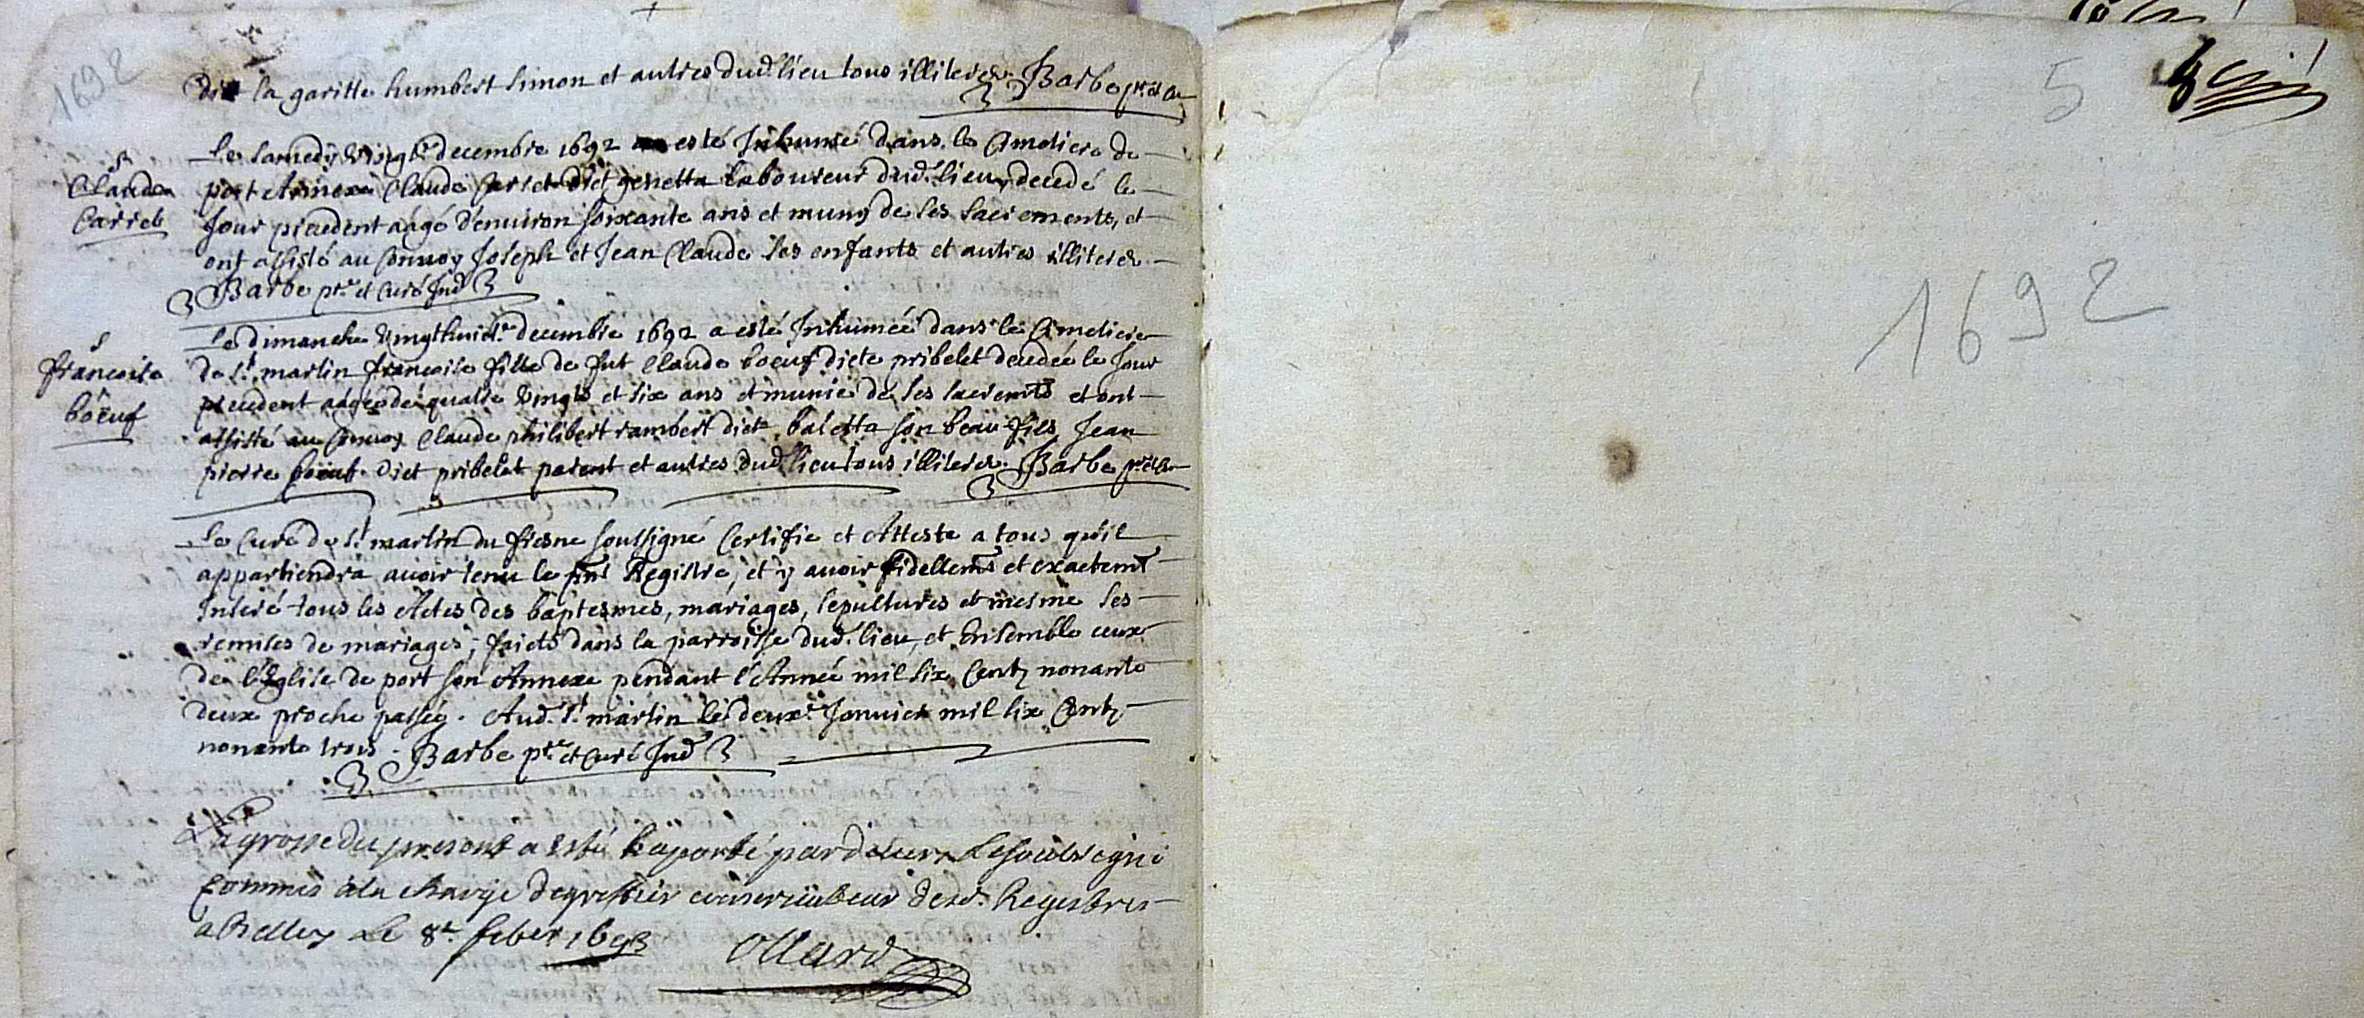 1692
dit la garitte humbert simon et autres dud. lieu tous illiteres. Barbe ptre et curé
S
Claude
Carret
Le samedy vingtr decembre 1692 a esté Inhumé dans le Cimetiere de
port Annexe Claude Carret dict genetta laboureur dud. lieu, decedé le
Jour precedent aagé denuiron soixante ans et muny de ses sacrements, et
ont assisté au conuoy Joseph et Jean Claude ses enfants et autres illiteres
Barbe ptre et curé Ind
S
francoise
boeuf
Le dimanche vingthuictr decembre 1692 a esté Inhumée dans le Cimetiere
de St martin francoise fille de fut Claude boeuf dicte pribelet decedée le Jour
precedent aagée de quatre vingts et six ans et munie de ses sacremts et ont
assisté au conuoy Claude philibert rambert dict baletta son beau fils Jean
pierre boeuf dict pribelet parent et autres dud. lieu tous illiteres. Barbe ptre et curé
Le Curé de St martin du fresne soussigné Certifie et Atteste a tous qu'il
appartiendra auoir tenu le pnt Registre, et y auoir fidellemt et exactemt
Inseré tous les Actes des baptesmes, mariages, sepultures et mesme les
remises de mariages, faicts dans la parroisse dud. lieu, et Ensemble ceux
de l'Eglise de port son Annexe pendant l'Année mil six Centz nonante
deux proche passée. Aud. St martin le deuxe Januier mil six Centz
nonante trois. Barbe ptre et curé Ind
La grosse du present a esté raporté par deuers Le soubsigné
Commis a la charge de greffier conseruateur desd. Registres
a Belley Le 8e feber 1693 Ollard
5
1692